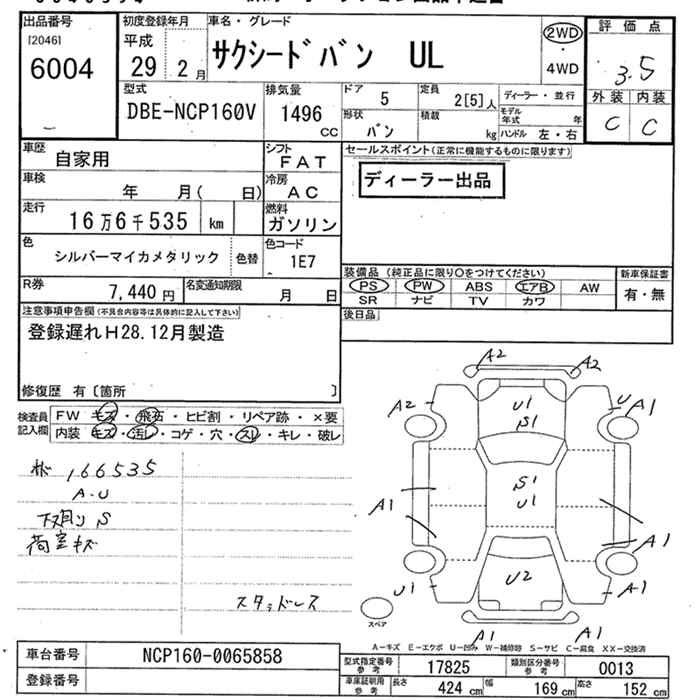 出品番号
[2046]
6004
初度登録年月
平成
29 2 月
車名・グレード
サクシードバン UL
2WD
・
4WD
評価点
3.5
外装 内装
C C
型式
DBE-NCP160V
排気量
1496
CC
ドア 5
定員 2[5]人
ディーラー・並行
形状 バン
積載 kg
モデル年式 年
ハンドル 左・右
車歴
自家用
シフト
FAT
車検
年 月( 日)
冷房
AC
走行
16万6千535 km
燃料
ガソリン
色
シルバーマイカメタリック
色替
色コード
1E7
R券
7,440 円
名変通知期限
月 日
セールスポイント(正常に機能するものに限ります)
ディーラー出品
装備品 (純正品に限り○をつけてください)
新車保証書
PS PW ABS エアB AW
SR ナビ TV カワ
有・無
後日品
注意事項申告欄(不具合内容等は具体的に記入して下さい)
登録遅れH28.12月製造
修復歴 有〔箇所 〕
検査員
記入欄
FW キズ・飛石・ヒビ割・リペア跡・×要
内装 キズ・汚レ・コゲ・穴・スレ・キレ・破レ
166535
A-U
下廻り S
荷室キズ
スタッドレス
A2 A2
U1
S1
A2
U A1
S1
U1
A1
A1
U2
U1
A1
A1 A1
スペア
A-キズ E-エクボ U-凹み W-補修跡 S-サビ C-腐食 XX-交換済
車台番号
NCP160-0065858
登録番号
型式指定番号
参考
17825
類別区分番号
参考
0013
車庫証明用
参考
長さ 424 cm
幅 169 cm
高さ 152 cm